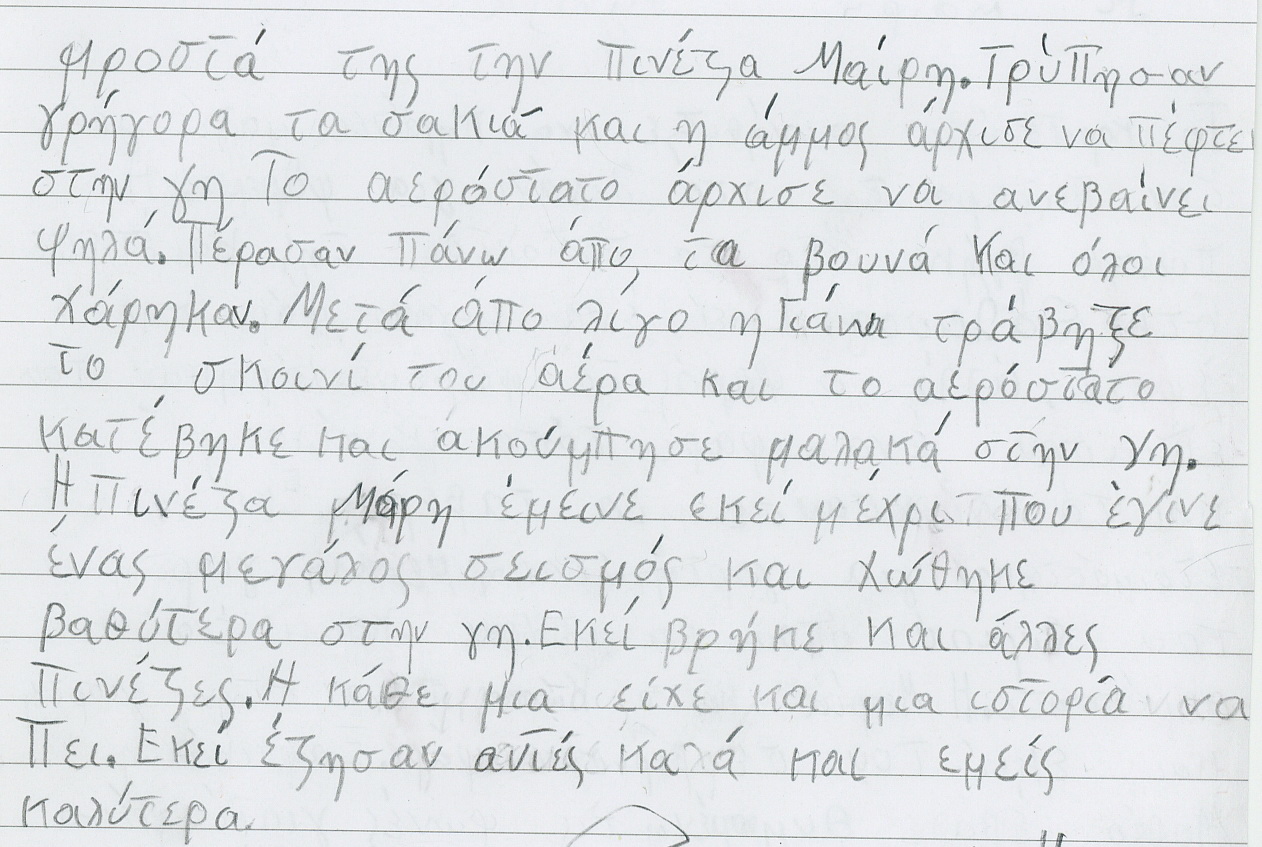 μροστά της την πινέζα Μαίρη. Τρύπησαν
γρήγορα τα σακιά και η άμμος άρχισε να πέφτει
στην γη Το αερόστατο άρχισε να ανεβαίνει
ψηλά. Πέρασαν πάνω άπο τα βουνά και όλοι
χάρηκαν. Μετά άπο λίγο η τράβηξε
το σκοινί του άέρα και το αερόστατο
κατέβηκε και άκούμπησε μαλακά στην γη.
Η πινέζα Μάρη έμεινε εκεί μέχρι που έγινε
ένας μεγάλος σεισμός και χώθηκε
βαθύτερα στην γη. Εκεί βρήκε και άλλες
πινέζες. Η κάθε μια είχε και μια ιστορία να
πει. Εκεί έζησαν αυτές καλά και εμείς
καλύτερα.